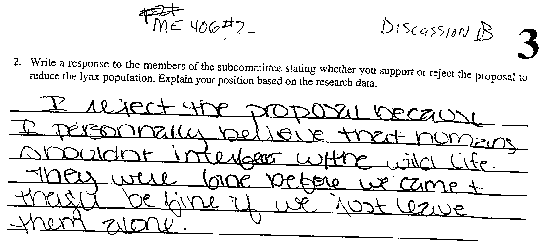 ME 406#2
DISCUSSION B
3
2. Write a response to the members of the subcommittee stating whether you support or reject the proposal to
reduce the lynx population. Explain your position based on the research data.
I reject the proposal because
I personnally believe that humans
shouldnt interfere w/the wild life.
They were fine before we came +
they'll be fine if we just leave
them alone.